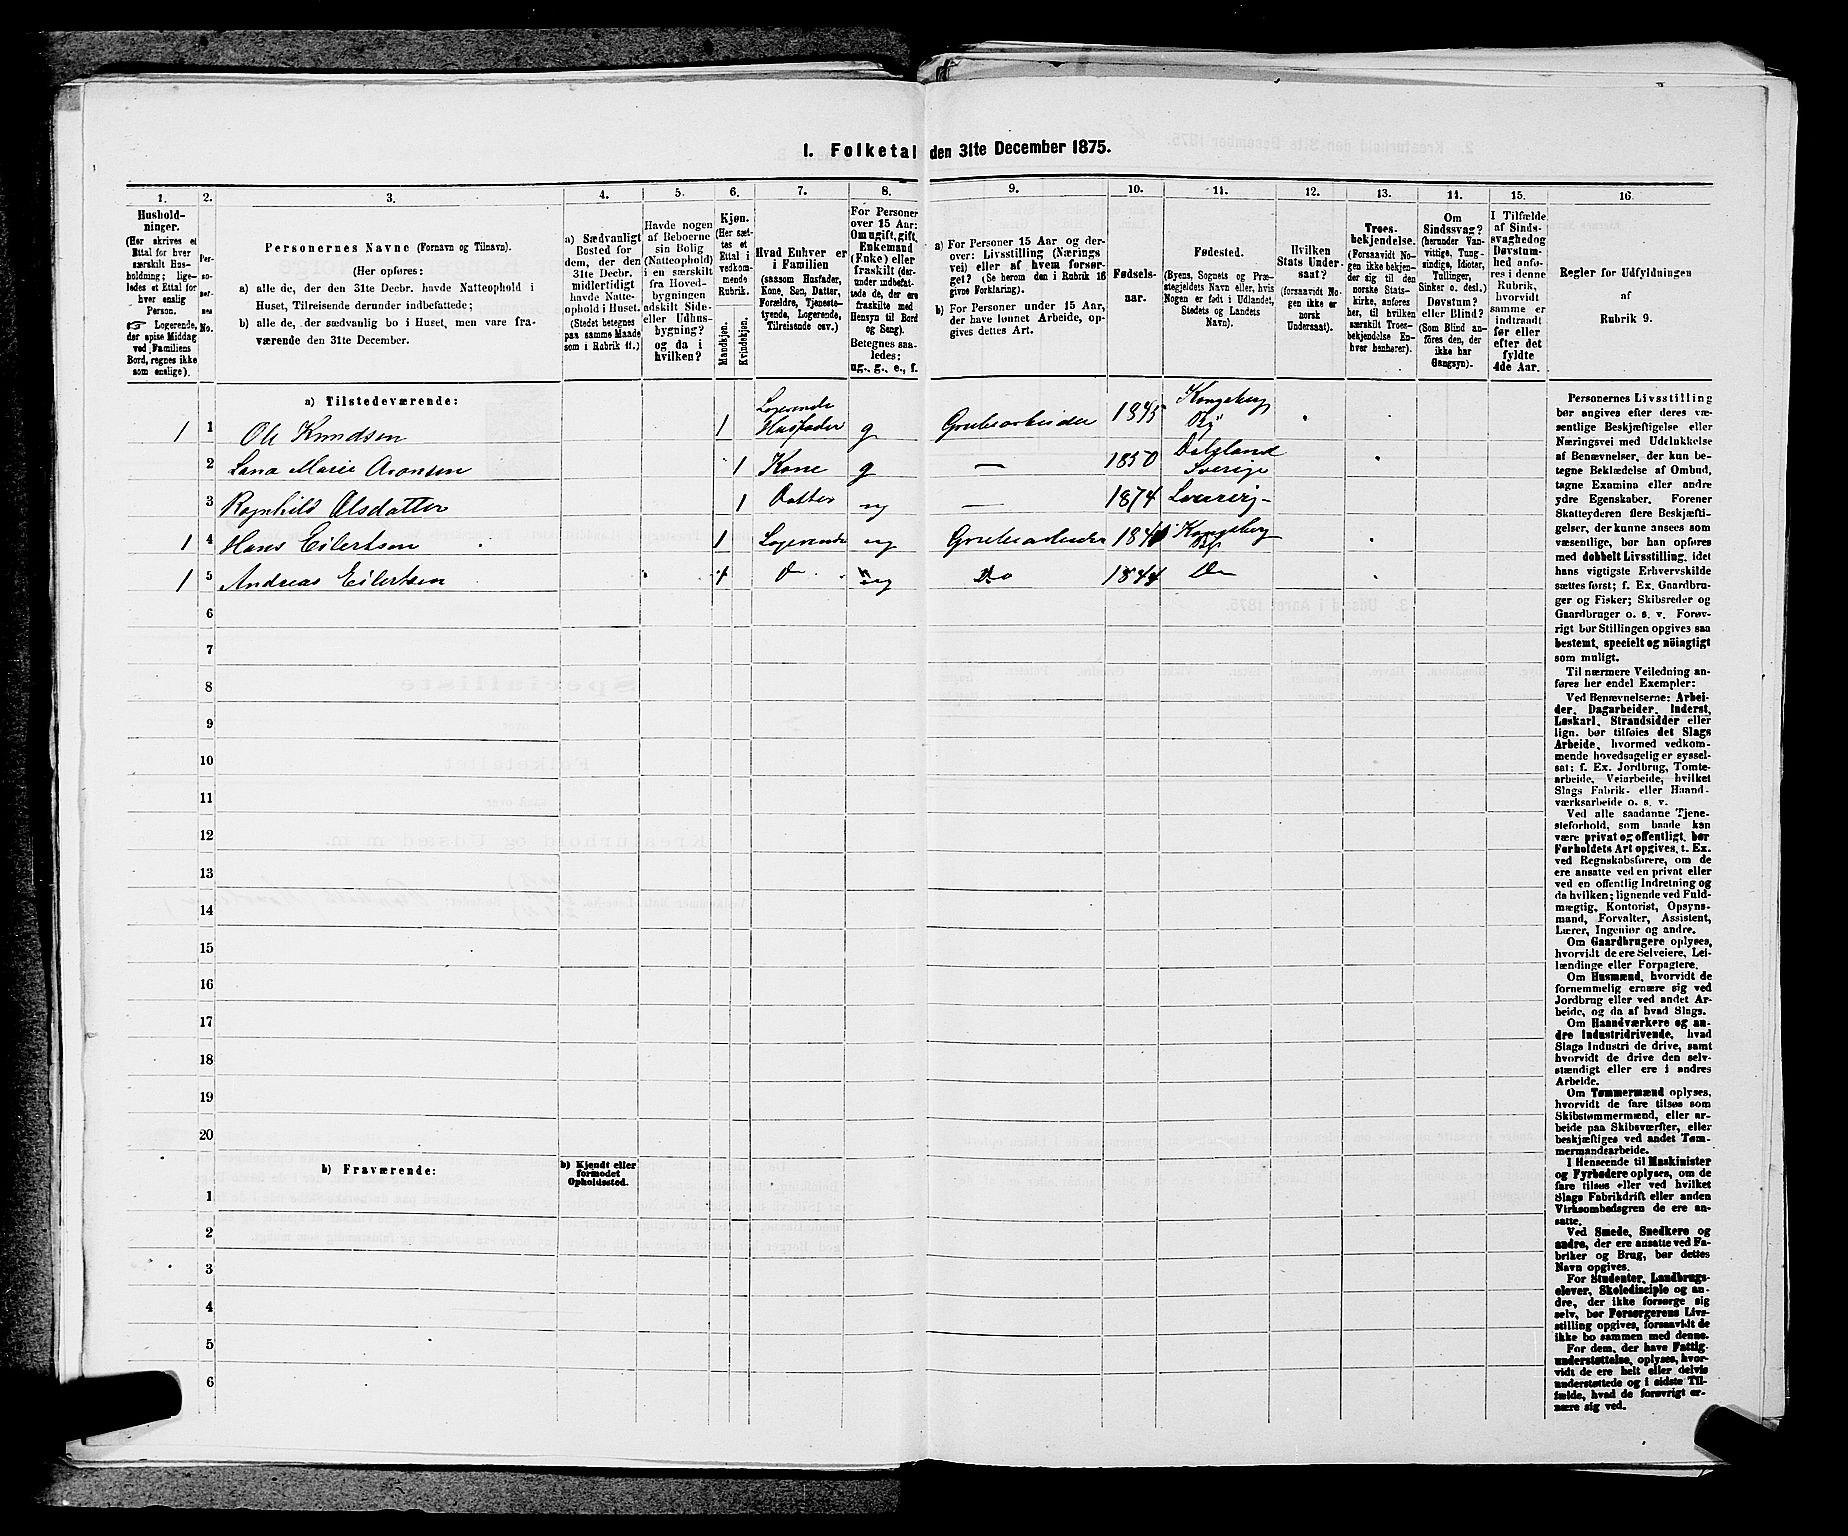 I. Folketal den 31te December 1875.
1. 2. 3. 4. 5. 6. 7. 8. 9. 10. 11. 12. 13. 14. 15. 16.
Hushold-
ninger.
(Her skrives et
Ettal for hver
særskilt Hus-
holdning; lige-
ledes et Ettal for
hver enslig
Person.
☞ Logerende,
der spise Middag
ved Familiens
Bord, regnes ikke
som enslige).
Per-
so-
ner-
nes
No.
Personernes Navne (Fornavn og Tilnavn).
(Her opføres:
a) alle de, der den 31te Decbr. havde Natteophold i
Huset, Tilreisende derunder indbefattede;
b) alle de, der sædvanlig bo i Huset, men vare fra-
værende den 31te December.
a) Sædvanligt
Bosted for
dem, der den
31te Decbr.
midlertidigt
havde Natte-
ophold i Huset.
(Stedet betegnes
paa samme Maade
som i Rubrik 11.)
Havde nogen
af Beboerne
sin Bolig
(Natteophold)
i en særskilt
fra Hoved-
bygningen
adskilt Side-
eller Udhus-
bygning?
og da i
hvilken?
Kjøn.
(Her sæt-
tes et
Ettal i
vedkom-
mende
Rubrik.
Mandkjøn.
Kvindekjøn.
Hvad Enhver er
i Familien
(saasom Husfader,
Kone, Søn, Datter,
Forældre, Tjeneste-
tyende, Logerende,
Tilreisende osv.)
For Personer
over 15 Aar:
Om ugift, gift,
Enkemand
(Enke) eller
fraskilt (der-
under indbefat-
tede de, der ere
fraskilte med
Hensyn til Bord
og Seng).
Betegnes saa-
ledes:
ug., g., e., f.
a) For Personer 15 Aar og der-
over: Livsstilling (Nærings
vei) eller af hvem forsør-
get? (Se herom den i Rubrik 16
givne Forklaring).
b) For Personer under 15 Aar,
der have lønnet Arbeide, op-
gives dettes Art.
Fødsels-
aar.
Fødested.
(Byens, Sognets og Præ-
stegjeldets Navn eller, hvis
Nogen er født i Udlandet,
Stedets og Landets
Navn).
Hvilken
Stats Under-
saat?
(forsaavidt No-
gen ikke er
norsk
Undersaat).
Troes-
bekjendelse.
(Forsaavidt No-
gen ikke bekjen-
der sig til den
norske Stats-
kirke, anføres
her, til hvilken
særskilt Troes-
bekjendelse En-
hver henhører).
Om
Sindssvag?
(herunder Van-
vittige, Tung-
sindige, Idioter,
Tullinger,
Sinker o. desl.)
Døvstum?
eller Blind?
(Som Blind an-
føres den, der
ikke har
Gangsyn).
I Tilfælde
af Sinds-
svaghed og
Døvstum-
hed anfø-
res i denne
Rubrik,
hvorvidt
samme er
indtraadt
før eller
efter det
fyldte
4de Aar.
Regler for Udfyldningen
af
Rubrik 9.
a) Tilstedeværende:
1 1 Ole Knudsen 1 Logerende Husfader g Grubearbeider 1845 Kongsberg By
2 Lena Marie Aronsen 1 Kone g — 1850 Dalsland Sverige
3 Ragnhild Olsdatter 1 Datter ug — 1874
1 4 Hans Eilertsen 1 Logerende ug Grubearbeider Kongsberg By
1 5 Andreas Eilertsen 1 ug Do 1844 Do
6
7
8
9
10
11
12
13
14
15
16
17
18
19
20
b) Fraværende:
b) Kjendt eller
formodet
Opholdssted.
1
2
3
4
5
6
Personernes Livsstilling
bør angives efter deres væ-
sentlige Beskjæftigelse eller
Næringsvei med Udelukkelse
af Benævnelser, der kun be-
tegne Beklædelse af Ombud,
tagne Examina eller andre
ydre Egenskaber. Forener
Skatteyderen flere Beskjæfti-
gelser, der kunne ansees som
væsentlige, bør han opføres
med dobbelt Livsstilling, idet
hans vigtigste Erhvervskilde
sættes først; f. Ex. Gaardbru-
ger og Fisker; Skibsreder og
Gaardbruger o. s. v. Forøv-
rigt bør Stillingen opgives saa
bestemt, specielt og nöiagtigt
som muligt.
Til nærmere Veiledning an-
føres her endel Exempler:
Ved Benævnelserne: Arbei-
der, Dagarbeider, Inderst,
Løskarl, Strandsidder eller
lign. bør tilføies det Slags
Arbeide, hvormed vedkom-
mende hovedsagelig er syssel-
sat; f. Ex. Jordbrug, Tomte-
arbeide, Veiarbeide, hvilket
Slags Fabrik- eller Haand-
værksarbeide o. s. v.
Ved alle saadanne Tjene-
steforhold, som baade kan
være privat og offentligt, bør
Forholdets Art opgives, t. Ex.
ved Regnskabsførere, om de
ere ansatte ved en privat eller
ved en offentlig Indretning og
da hvilken; lignende ved Fuld-
mægtig, Kontorist, Opsyns-
mand, Forvalter, Assistent,
Lærer, Ingeniør og andre.
Om Gaardbrugere oplyses,
hvorvidt de ere Selveiere, Lei-
lændinge eller Forpagtere.
Om Husmænd, hvorvidt de
fornemmelig ernære sig ved
Jordbrug eller ved andet Ar-
beide, og da af hvad Slags.
Om Haandværkere og an-
dre Industridrivende, hvad
Slags Industri de drive, samt
hvorvidt de drive den selv-
stændigt eller ere i andres
Arbeide.
Om Tømmermænd oplyses,
hvorvidt de fare tilsøs som
Skibstømmermænd, eller ar-
beide paa Skibsværfter, eller
beskjæftiges ved andet Tøm-
mermandsarbeide.
I Henseende til Maskinister
og Fyrbødere oplyses, om de
fare tilsøs eller ved hvilket
Slags Fabrikdrift eller anden
Virksombedsgren de ere an-
satte.
Ved Smede, Snedkere og
andre, der ere ansatte ved Fa-
briker og Brug, bør dettes
Navn opgives.
For Studenter, Landbrugs-
elever, Skoledisciple og an-
dre, der ikke forsørge sig
selv, bør Forsørgerens Livs-
stilling opgives, forsaavidt de
ikke bo sammen med denne.
For dem, der have Fattig-
understøttelse, oplyses, hvor-
vidt de ere helt eller delvis
understøttede og i sidste Til-
fælde, hvad de forøvrigt er-
nære sig ved.